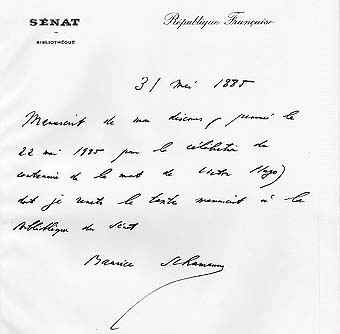 SÉNAT
BIBLIOTHÈQUE
République Française
31 mai 1985
Manuscrit de mon discours, prononcé le
22 mai 1985 pour la célébration du
centenaire de la mort de Victor Hugo)
dont je remets le texte manuscrit à la
Bibliothèque du Sénat
Maurice Schumann